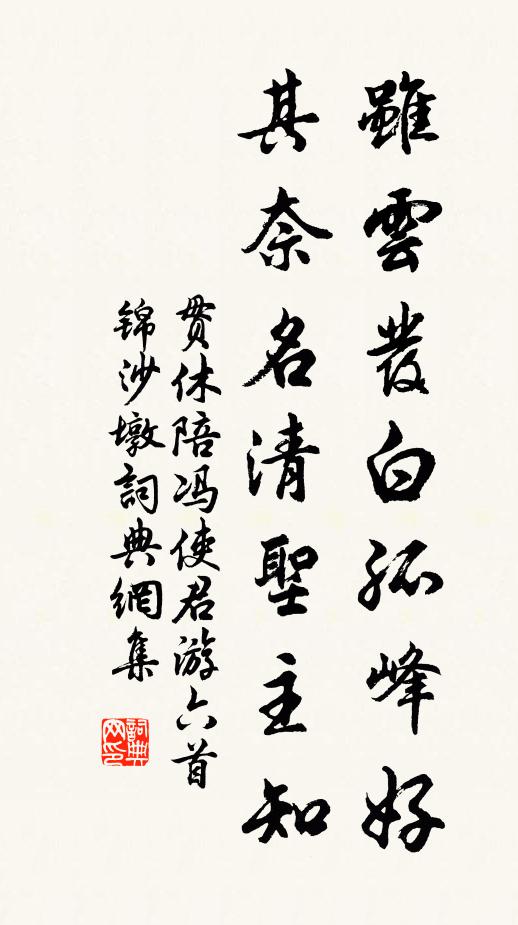 雖雲發白孤峰好
其奈名清聖主知
貫休陪冯使君游六首
锦沙墩詞典網集
詞典
网印